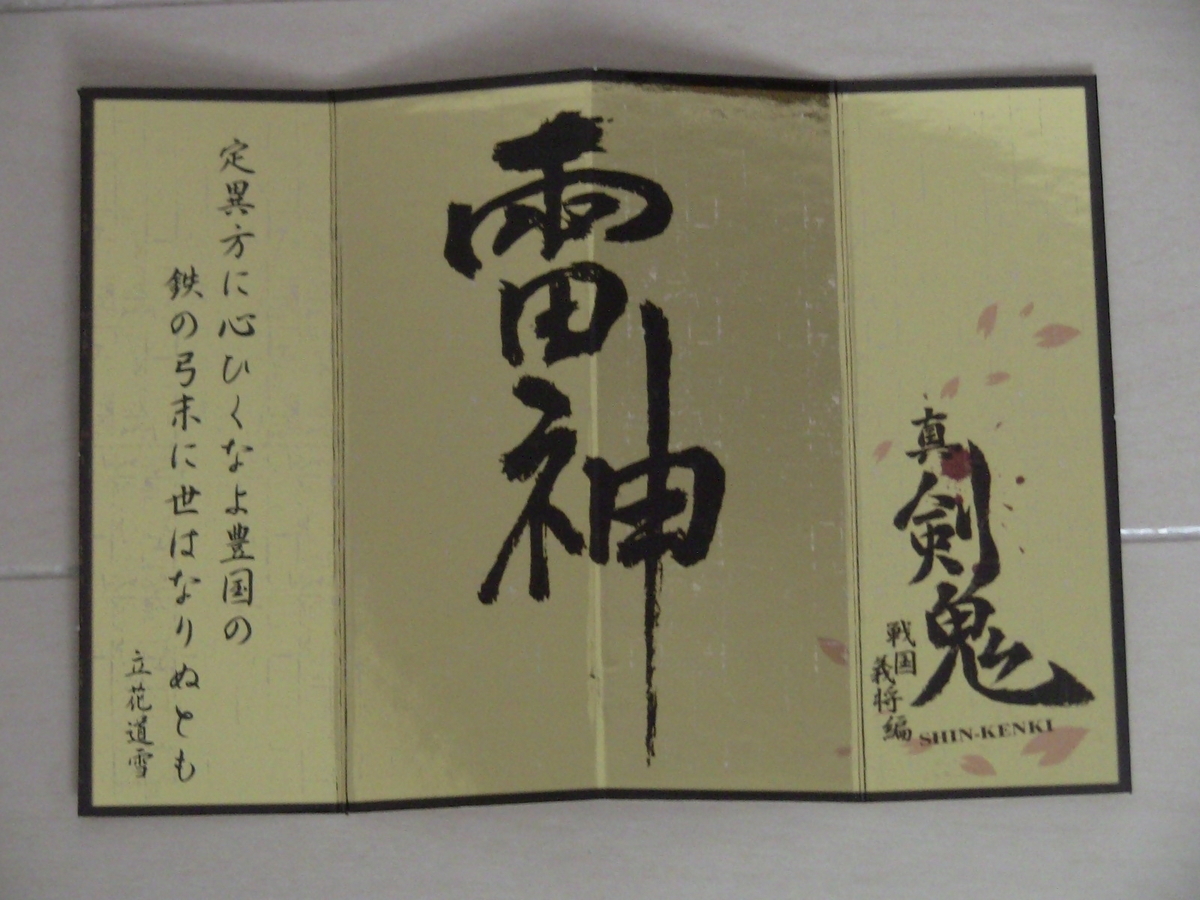 真剣鬼
戦国
義将編
SHIN-KENKI
雷神
定異方に心ひくなよ豊国の
鉄の弓末に世はなりぬとも
立花道雪